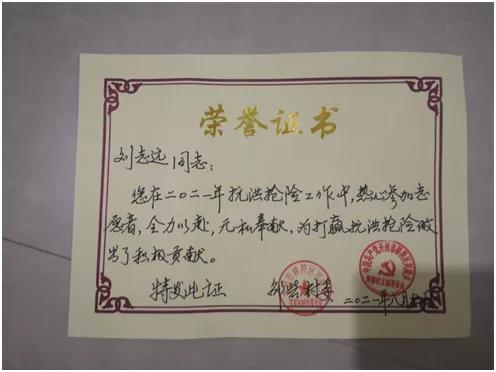 荣誉证书
刘志远同志：
您在二〇二一年抗洪抢险工作中，热心参加志
愿者，全力以赴，无私奉献，为打赢抗洪抢险做
出了积极贡献。
特发此证
村委
二〇二一年八月